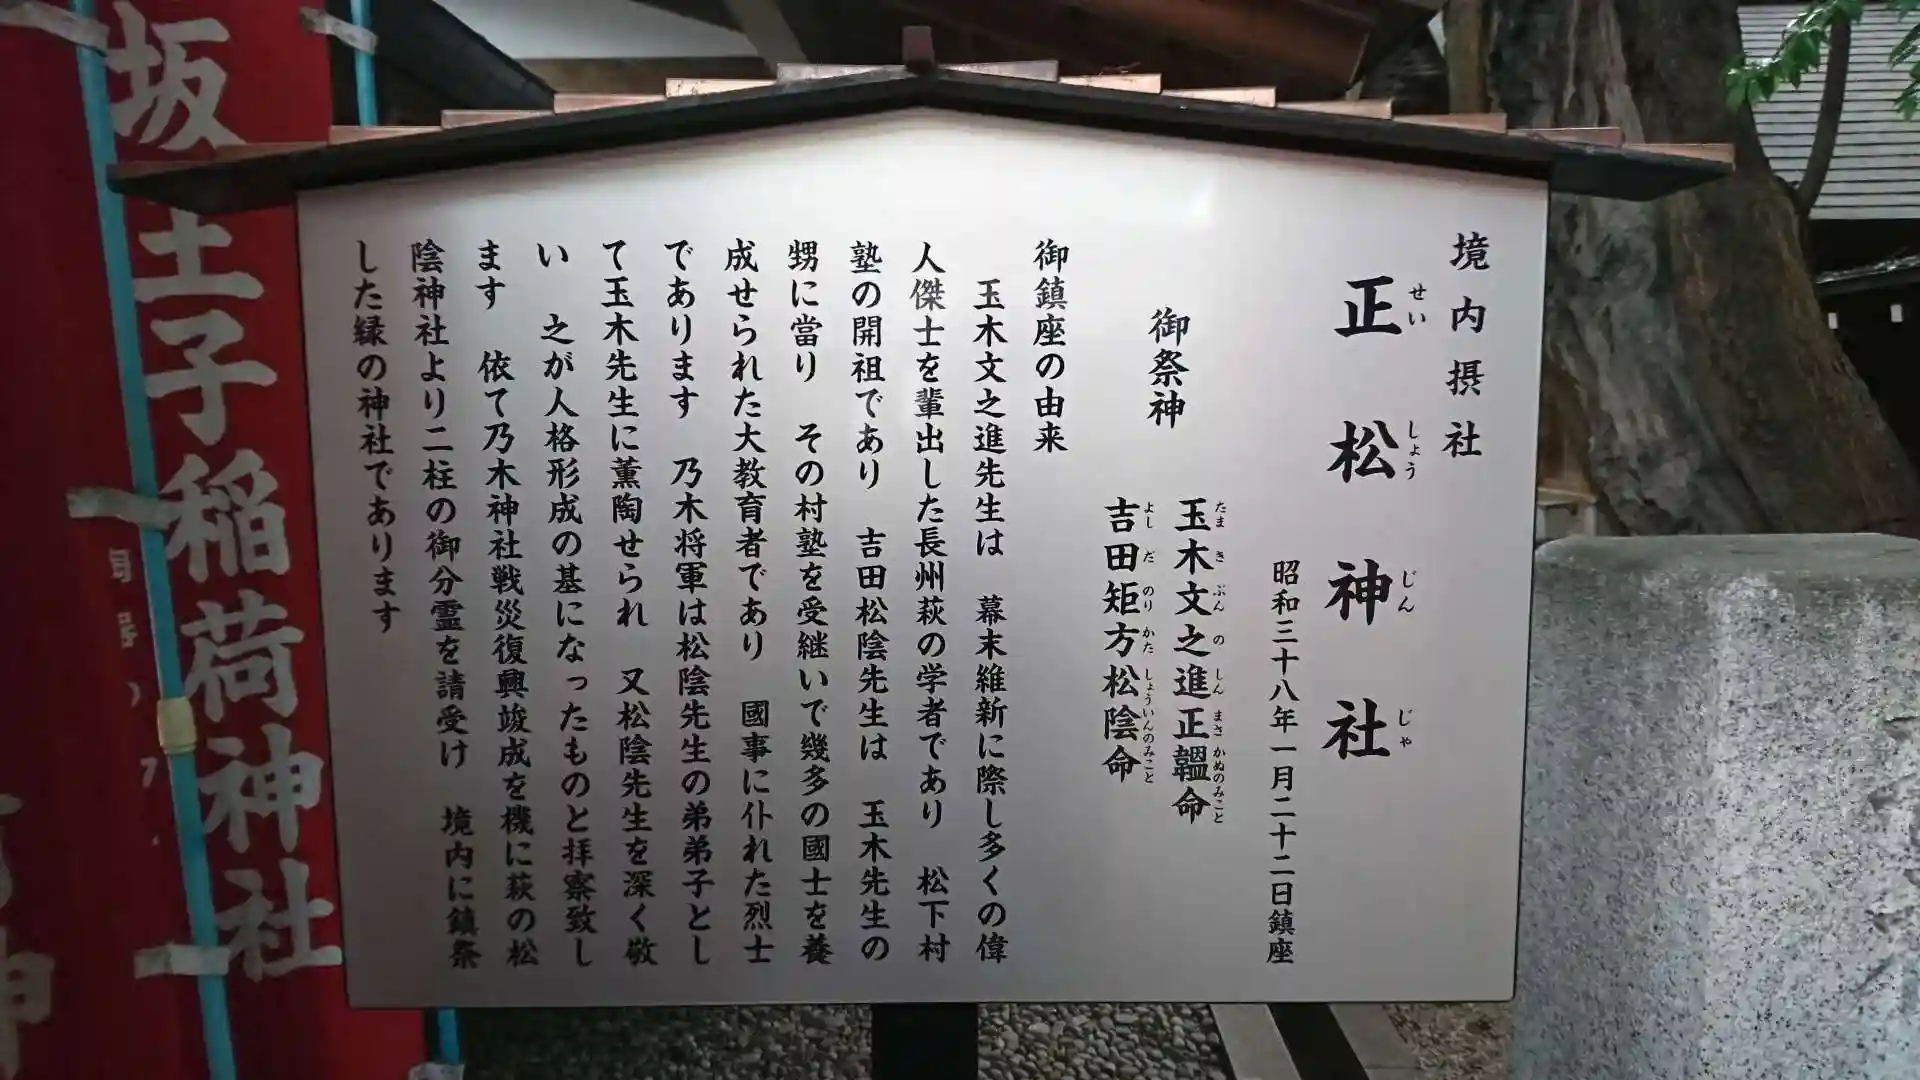 境内摂社
正松神社
せいしょうじんじゃ
昭和三十八年一月二十二日鎮座
御祭神
玉木文之進正韞命
たまきぶんのしんまさかぬのみこと
吉田矩方松陰命
よしだのりかたしょういんのみこと
御鎮座の由来
玉木文之進先生は 幕末維新に際し多くの偉
人傑士を輩出した長州萩の学者であり 松下村
塾の開祖であり 吉田松陰先生は 玉木先生の
甥に當り その村塾を受継いで幾多の國士を養
成せられた大教育者であり 國事に仆れた烈士
であります 乃木将軍は松陰先生の弟弟子とし
て玉木先生に薫陶せられ 又松陰先生を深く敬
い 之が人格形成の基になったものと拝察致し
ます 依て乃木神社戦災復興竣成を機に萩の松
陰神社より二柱の御分霊を請受け 境内に鎮祭
した縁の神社であります
坂王子稲荷神社
神